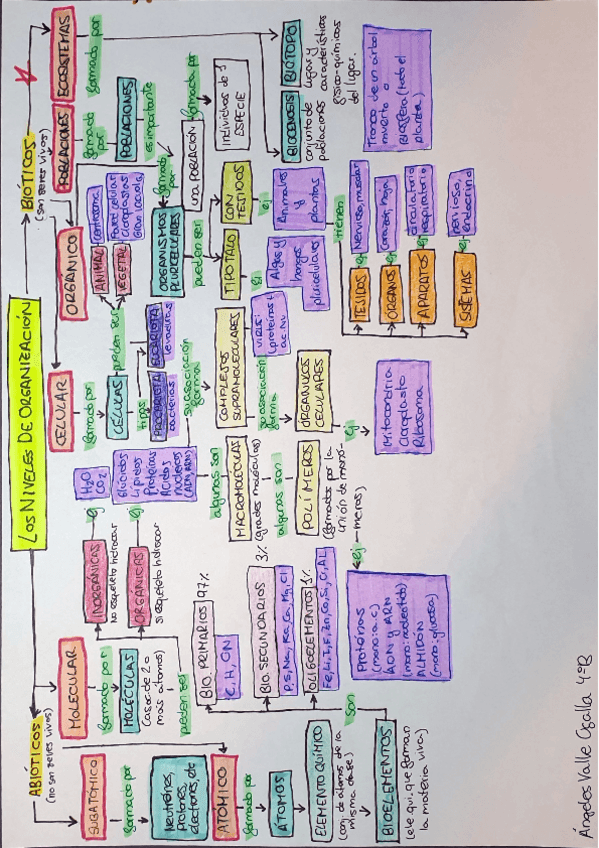 LOS NIVELES DE ORGANIZACIÓN
ABIÓTICOS
(no son seres vivos)
SUBATÓMICO
formado por
Neutrones,
protones,
electrones, etc
ATÓMICO
formado por
ÁTOMOS
ELEMENTO QUÍMICO
(conj. de átomos de la
misma clase)
BIOELEMENTOS
(ele. qui. que forman
la materia viva)
son
BIO. PRIMARIOS 97%
C, H, O, N
BIO. SECUNDARIOS 3%
OLIGOELEMENTOS 1%
MOLECULAR
formado por
MOLÉCULAS
(asoc. de 2 o
más átomos)
pueden ser
INORGÁNICAS
No esqueleto hidrocar.
ej
H2O
CO2
ORGÁNICAS
si esqueleto hidrocar
ej
Glúcidos
Lípidos
Proteínas
Ácidos
nucleicos
(ADN, ARN)
algunas son
MACROMOLÉCULAS
(grades moléculas)
algunas son
POLÍMEROS
(formados por la
unión de monó-
meros)
ej
Proteínas
(mono: a.c.)
ADN y ARN
(mono: nucleótido)
ALMIDÓN
(mono: glucosa)
BIÓTICOS
(son seres vivos)
CELULAR
formado por
CÉLULAS
pueden ser
ANIMAL
centrosoma
VEGETAL
Pared celular
Cloroplastos
Gran vacuola
tipos
PROCARIOTA
bacterias
EUCARIOTA
levaduras
su asociación
forma
COMPLEJOS
SUPRAMOLECULARES
VIRUS:
(proteínas +
ac. Nu
su asociación
forma
ORGÁNULOS
CELULARES
ej
Mitocondria
Cloroplasto
Ribosoma
ORGÁNICO
formado
por
ORGANISMOS
PLURICELULARES
pueden ser
TIPO TALO
ej
Algas y
hongos
pluricelulares
CON
TEJIDOS
ej
Animales
y
plantas
tienen
TEJIDOS
ej
Nervioso, muscular
ÓRGANOS
ej
Corazón, hoja
APARATOS
ej
circulatorio
respiratorio
SISTEMAS
ej
nervioso,
endocrino
POBLACIONES
formado
por
POBLACIONES
es importante
una POBLACIÓN
formado por
Individuos de 1
ESPECIE
ECOSISTEMAS
formado por
BIOCENOSIS
conjunto de
poblaciones
BIÓTOPO
Lugar y
características
físico-químicas
del lugar.
Tronco de un árbol
muerto o
Biosfera (todo el
planeta)
Ángeles Valle Csalla 4ºB